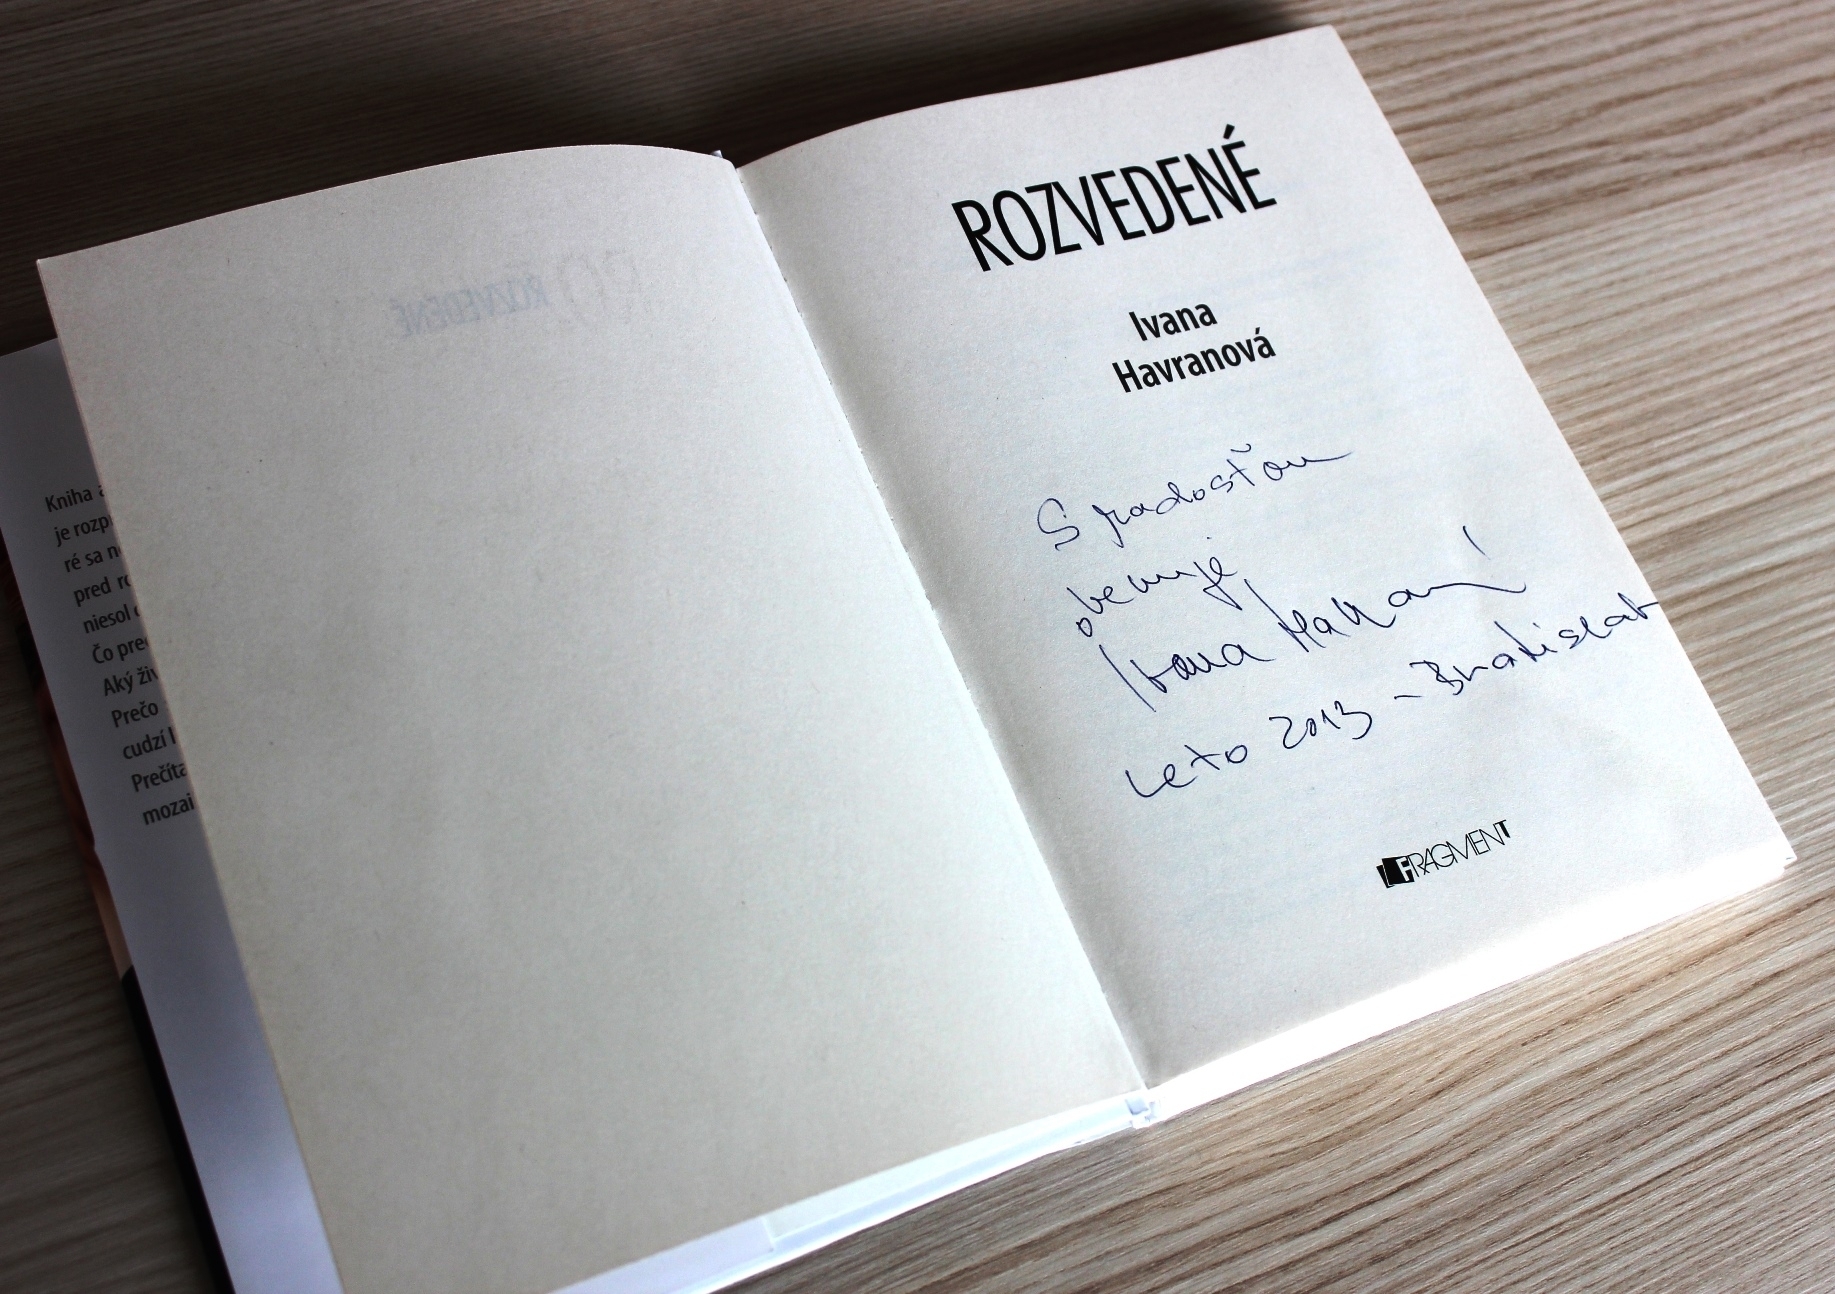 Kniha
je rozp
ré sa n
pred ro
niesol
Čo pre
Aký živ
Prečo
cudzí
Prečíta
mozai
ROZVEDENÉ
ROZVEDENÉ
Ivana
Havranová
S radosťou
venuje
Ivana Havranová
Leto 2013 - Bratislava
FRAGMENT